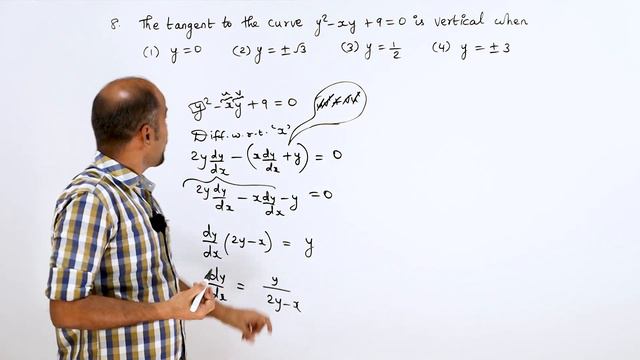 8. The tangent to the curve y² - xy + 9 = 0 is vertical when
(1) y = 0 (2) y = ± √3 (3) y = 1/2 (4) y = ± 3
u v
y² - xy + 9 = 0
Diff. w.r.t. 'x'
2y dy/dx - (x dy/dx + y) = 0
2y dy/dx - x dy/dx - y = 0
dy/dx (2y - x) = y
dy/dx = y/(2y - x)